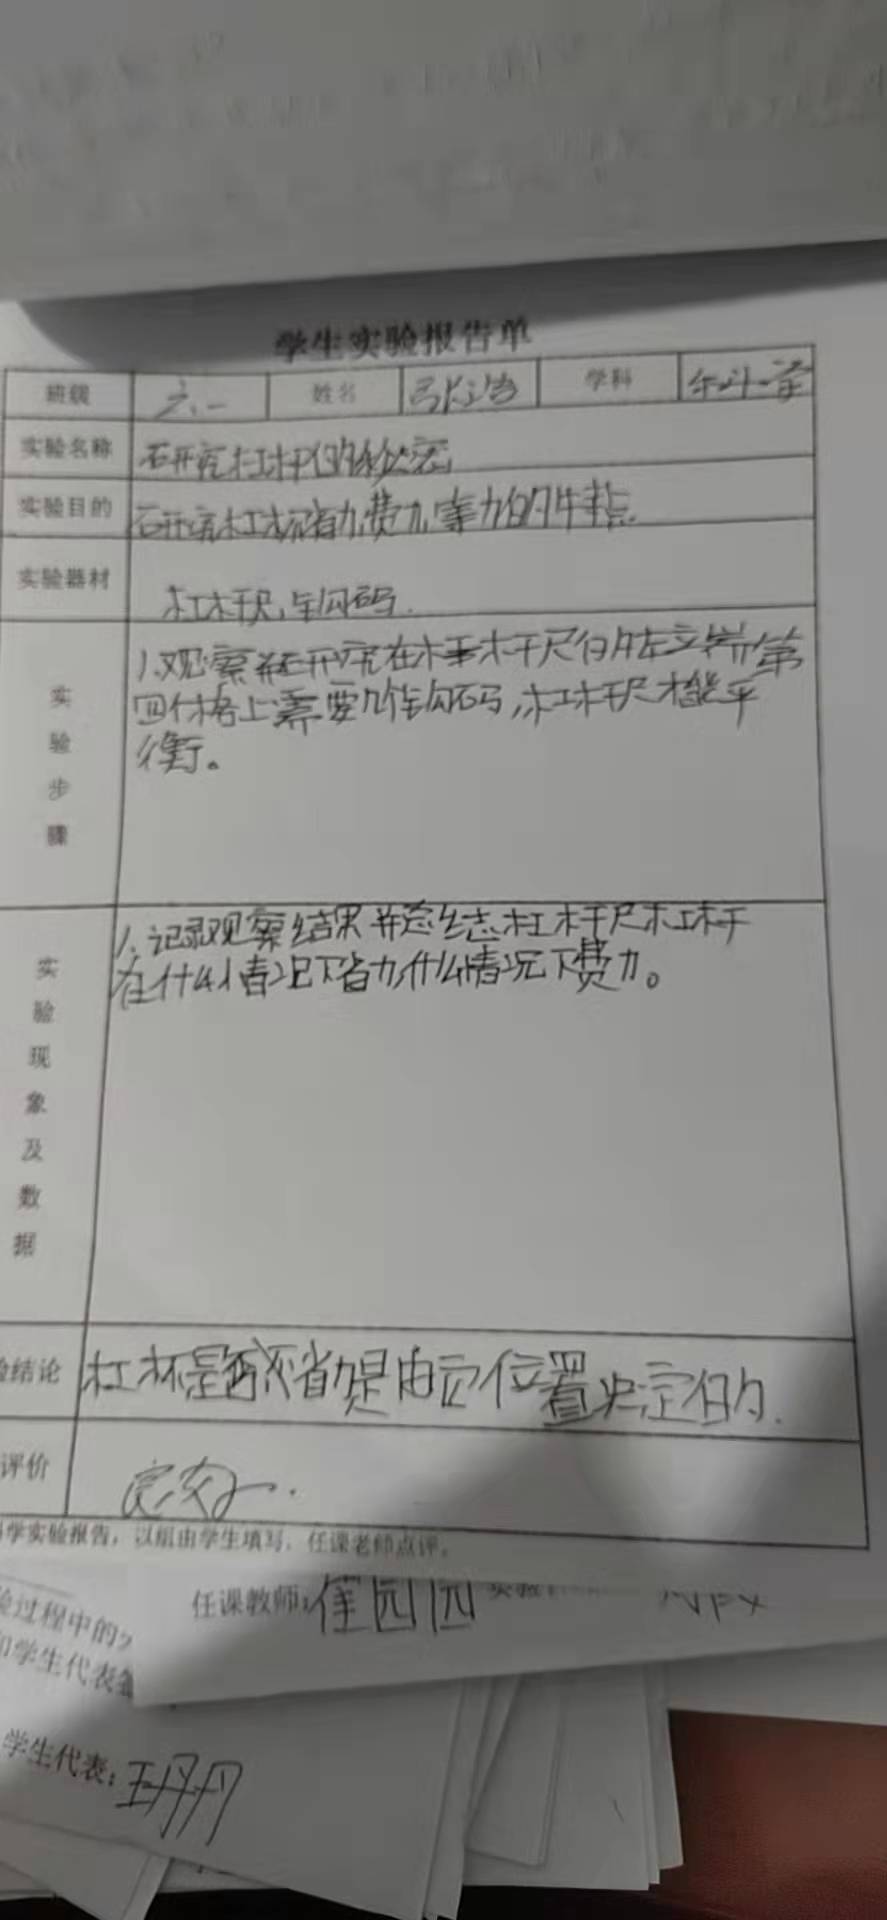 学生实验报告单
班级 六.一 姓名 张浩 学科
实验名称 研究杠杆的秘密
实验目的 研究杠杆省力,费力,等力的特点.
实验器材 杠杆尺,钩码.
实验步骤
1.观察并研究在杠杆尺的左立端第
四个格上需要几个钩码,杠杆尺才能平
衡。
实验现象及数据
1.记录观察结果并总结杠杆尺杠杆
在什么情况下省力,什么情况下费力。
验结论 杠杆是否省力是由它位置决定的.
评价 良好.
学实验报告,以组由学生填写,任课老师点评。
任课教师:崔园园
验过程中的
和学生代表签
学生代表:王丹丹